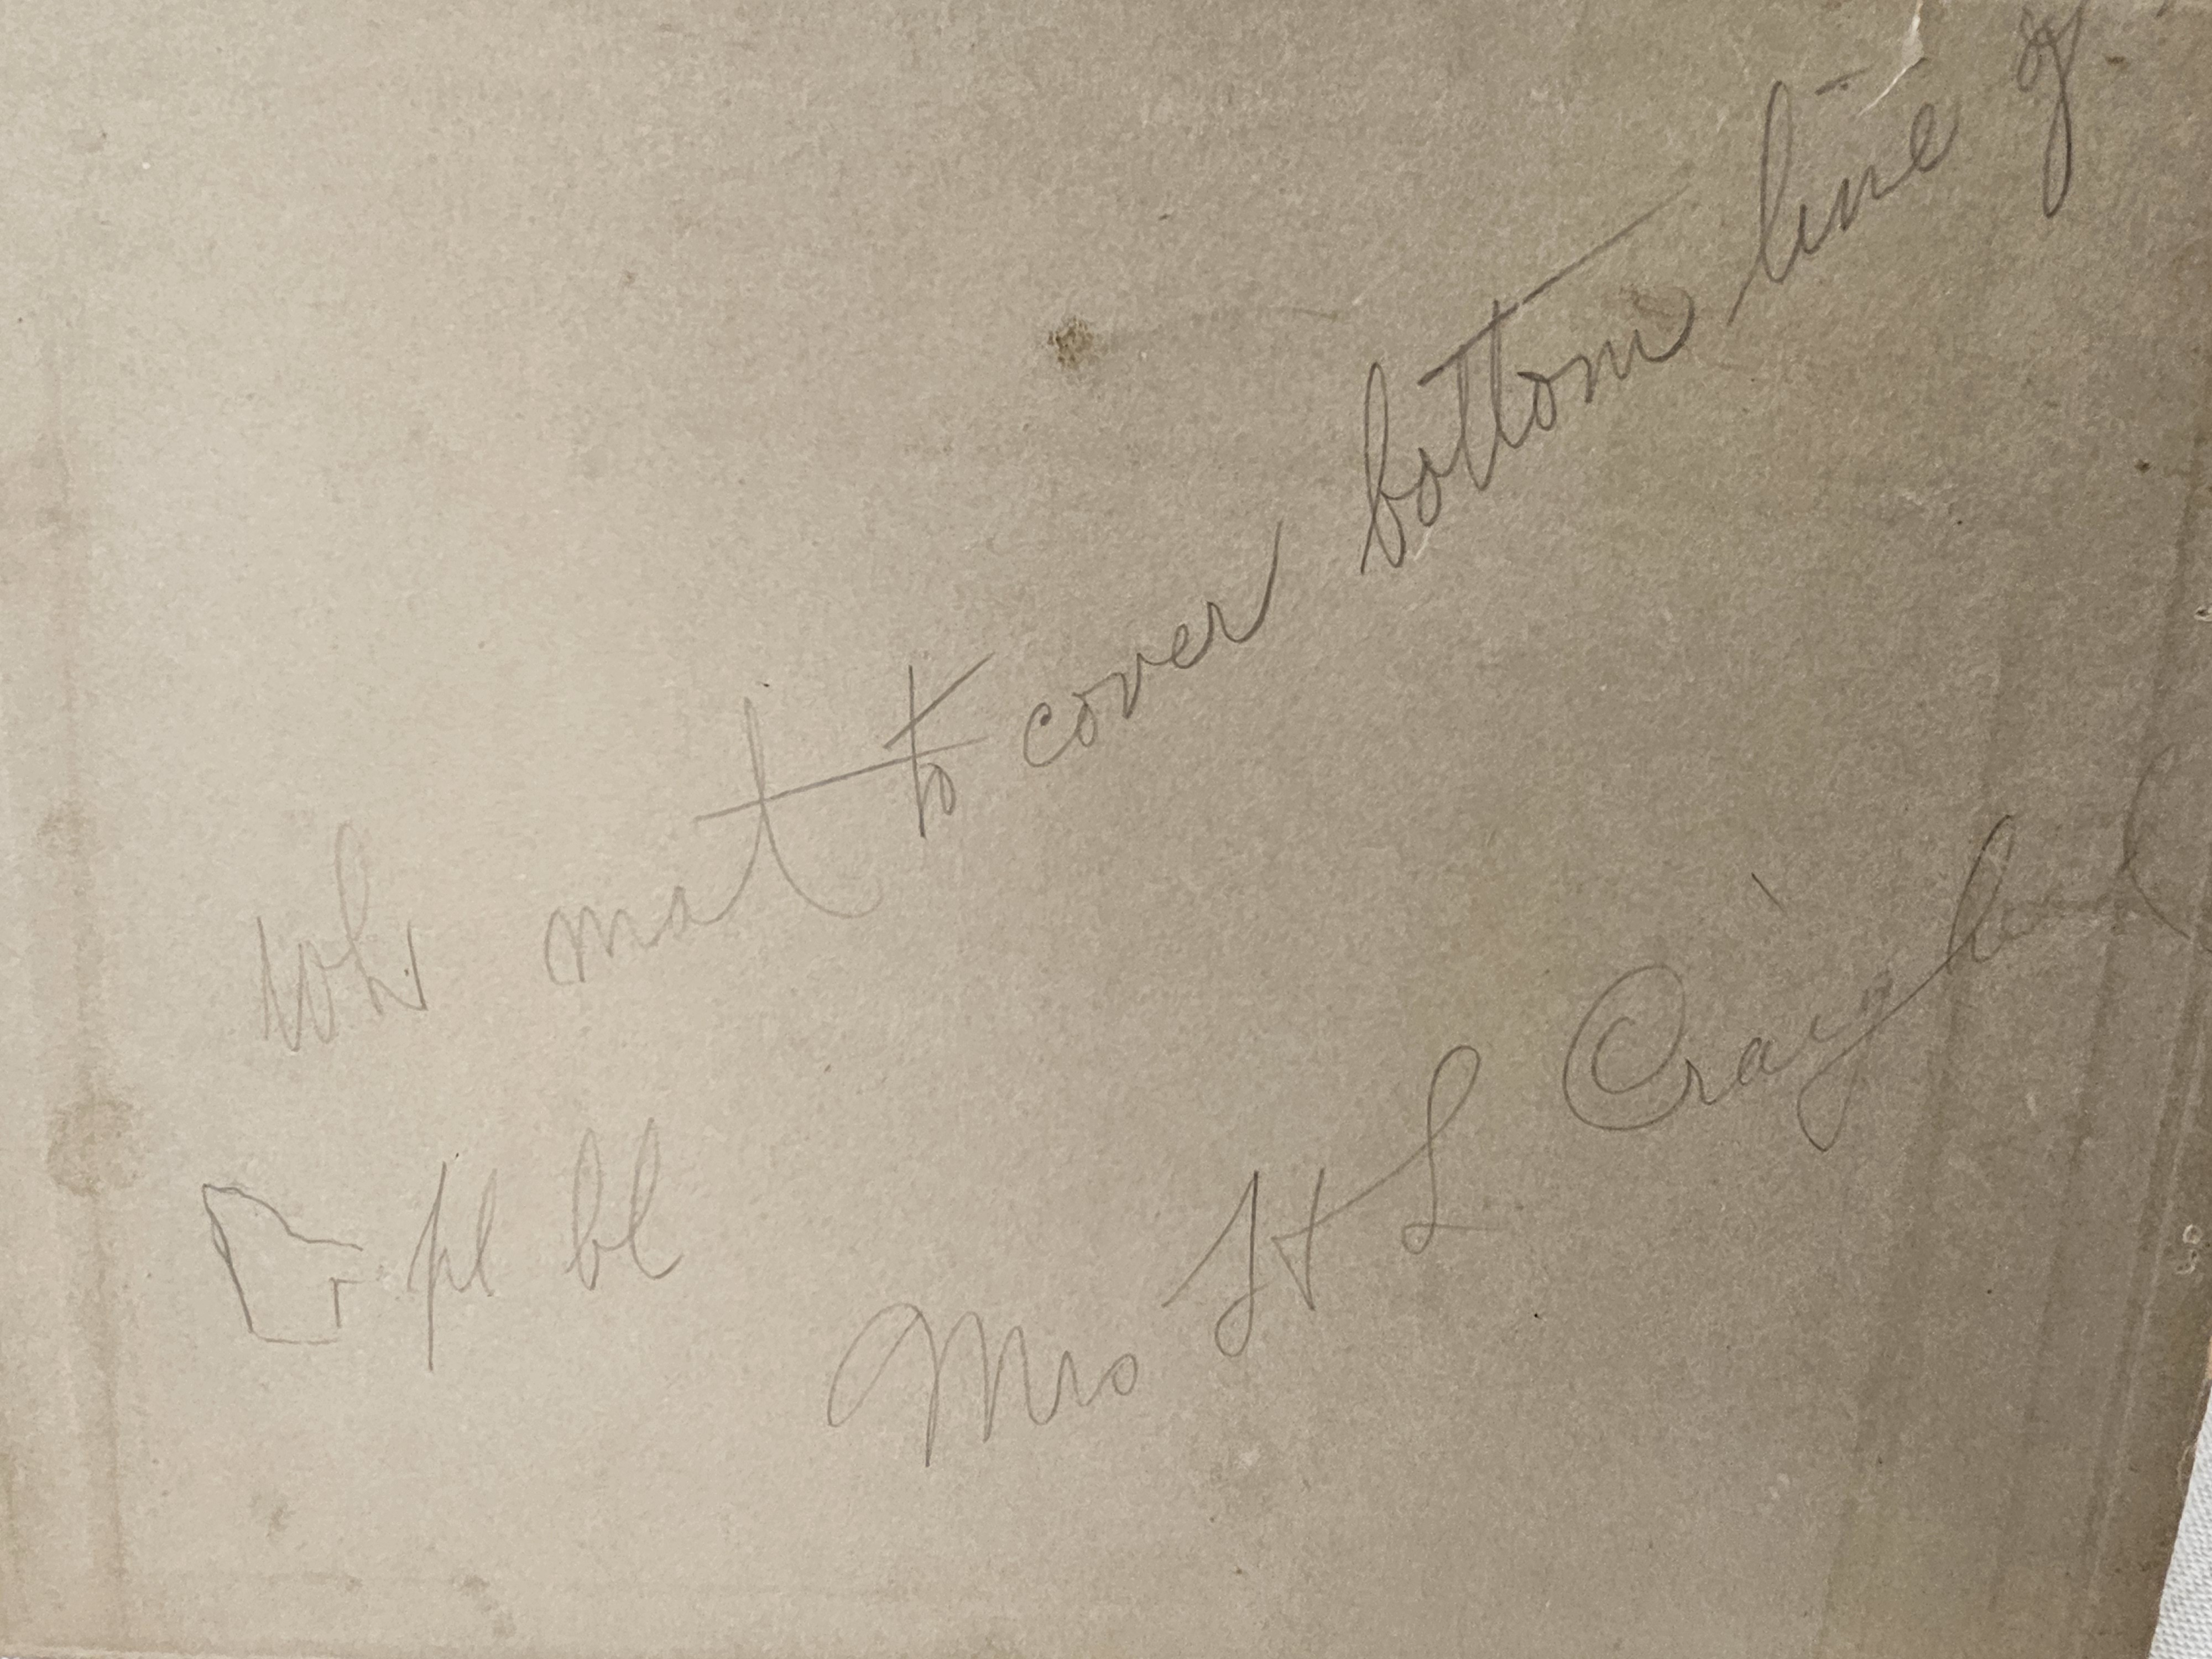 Wh mat to cover bottom line of
pl bl
Mrs H L